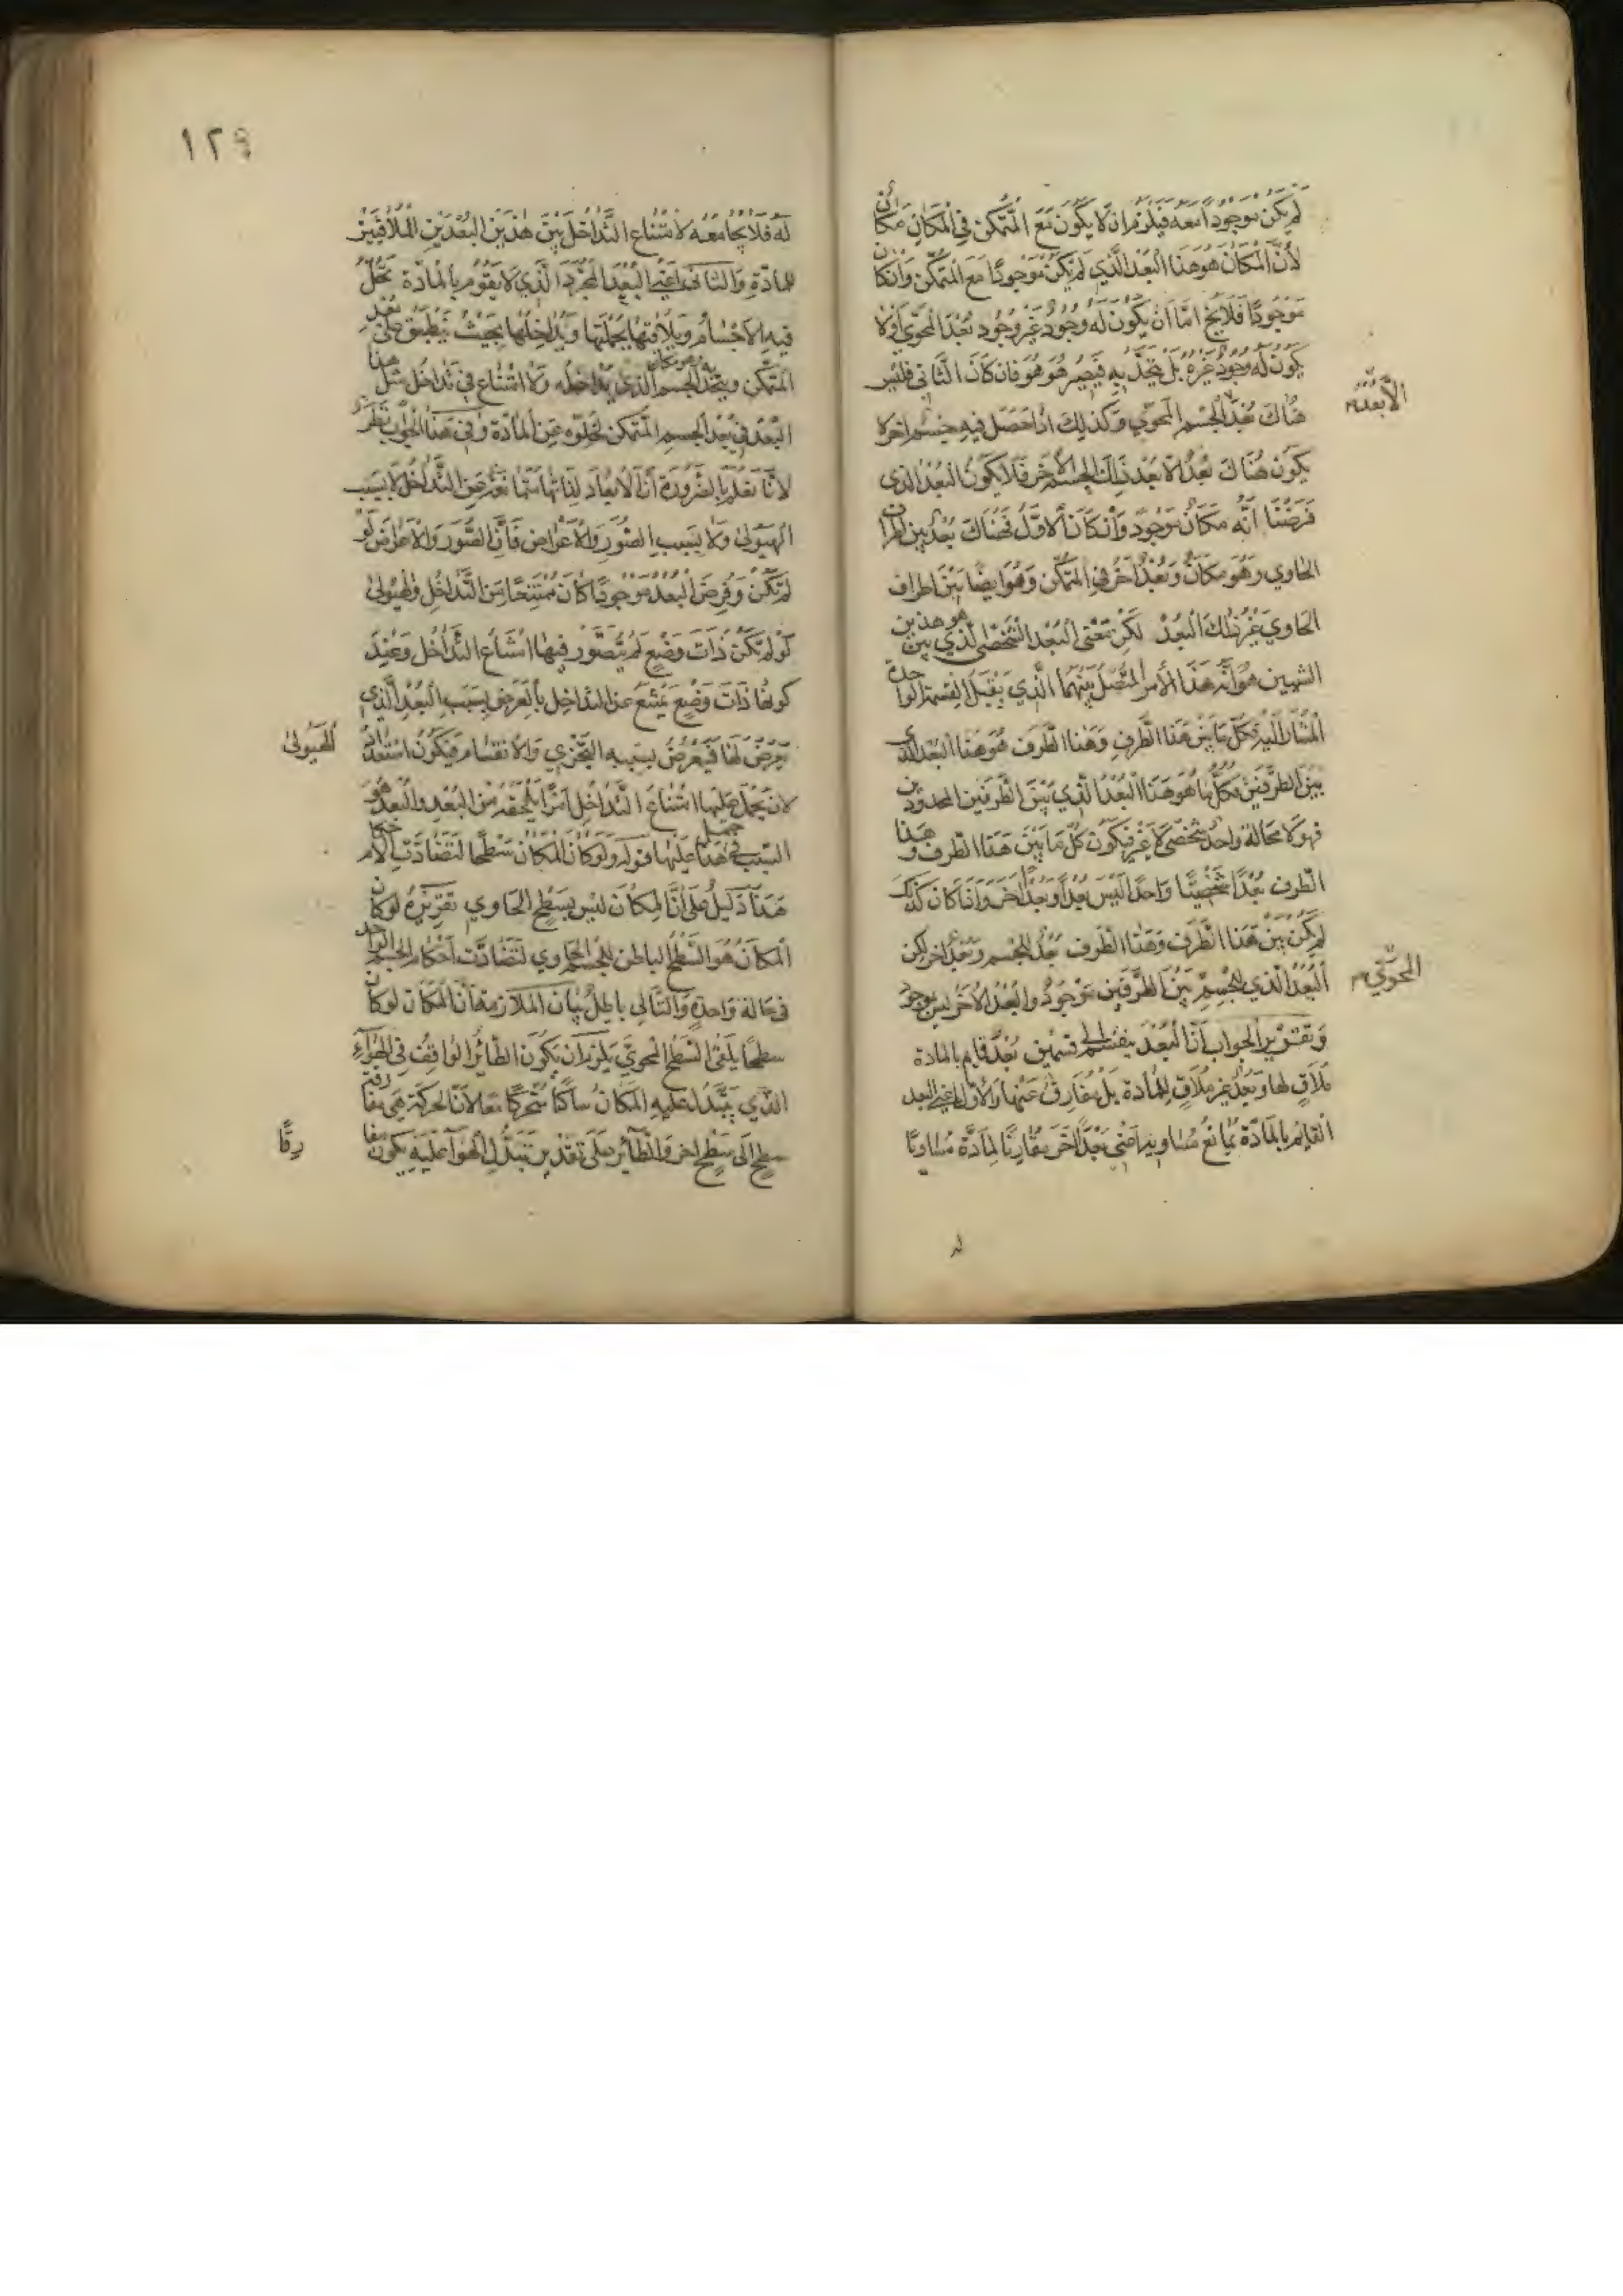 لم يكن موجودا معه فيلزم ان لا يكون مع المتمكن في المكان مكان
لأن المكان هو هذا البعد الذي لم يكن موجودا مع المتمكن وان كان
موجودا فلا يخ اما ان يكون له وجود غير وجود بعد المحوي او لا
يكون له وجود غيره بل يتحد به فيصير هو هو فان كان الثاني فليس
هناك بعد الجسم المحوي وكذلك اذا حصل فيه جسم اخر لا
يكون هناك بعد الا بعد ذلك الجسم الآخر فلا يكون البعد الذي
فرضنا انه مكان موجود وان كان الاول فهناك بعد بين اطراف
الحاوي وهو مكان وبعد آخر في المتمكن وهو ايضا بين اطراف
الحاوي غير ذلك البعد لكن معنى البعد الشخصي الذي بين هذين
الشيئين هو انه هذا الأمر المتصل بينهما الذي يقبل القسمة الواحدة
المشار اليه فكل ما بين هذا الطرف وهذا الطرف هو هذا البعد الذي
بين الطرفين وكل ما هو هذا البعد الذي بين الطرفين المحدودين
فهو لا محالة واحد شخصي لا غير فيكون كل ما بين هذا الطرف وهذا
الطرف بعدا شخصيا واحدا ليس بعدا وبعدا آخر واذا كان كذلك
لم يكن بين هذا الطرف وهذا الطرف بعد للجسم وبعد آخر لكن
البعد الذي للجسم بين الطرفين موجود والبعد الآخر ليس بموجود
وتقرير الجواب ان البعد ينقسم الى قسمين بعد قايم بالمادة
ملاق لها وبعد غير ملاق للمادة بل مفارق عنها والاول اعني البعد
القايم بالمادة يمانع مساويه اعني بعدا آخر مقارنا لمادة مساويا
الا بعد
المحوي
له
١٢٩
له فلا يجامعه لامتناع التداخل بين هذين البعدين الملاقيين
للمادة والثاني اعني البعد المجرد الذي لا يقوم بالمادة تحل
فيه الاجسام ويلاقيها بجملتها ويداخلها بحيث ينطبق على بعد
المتمكن ويتحد به الجسم الذي يداخله ولا امتناع في تداخل مثل هذا
البعد في بعد الجسم المتمكن لخلوه عن المادة وفي هذا الجواب نظر
لأنا نعلم بالضرورة ان الابعاد لذاتها تتمانع عن التداخل لا بسبب
الهيولى ولا بسبب الصور والاعراض فان الصور والاعراض لو
لم تكن وفرض البعد موجودا كان ممتنعا من التداخل والهيولى
لو لم تكن ذات وضع لم يتصور فيها امتناع التداخل وعند
كونها ذات وضع يمتنع عن التداخل بالعرض بسبب البعد الذي
يعرض لها فيعرض بسببه التجزي والانقسام فيكون استعداد
الهيولى
لان يحمل عليها امتناع التداخل امرا يلحقه من البعد والبعد هو
السبب في حمل هذا عليها قوله ولو كان المكان سطحا لتضادت الاحكام
هذا دليل على ان المكان ليس بسطح الحاوي تقريره لو كان
المكان هو السطح الباطن للجسم الحاوي لتضادت احكام الجسم الواحد
في حالة واحدة والتالي باطل بيان الملازمة ان المكان لو كان
سطحا يلقى السطح المحوي يلزم ان يكون الطائر الواقف في الهواء
الذي يتبدل عليه المكان ساكنا متحركا معا لان الحركة هي مفارقة
سطح الى سطح اخر والطائر على تقدير تبدل الهوآ عليه يكون مفا
رقا